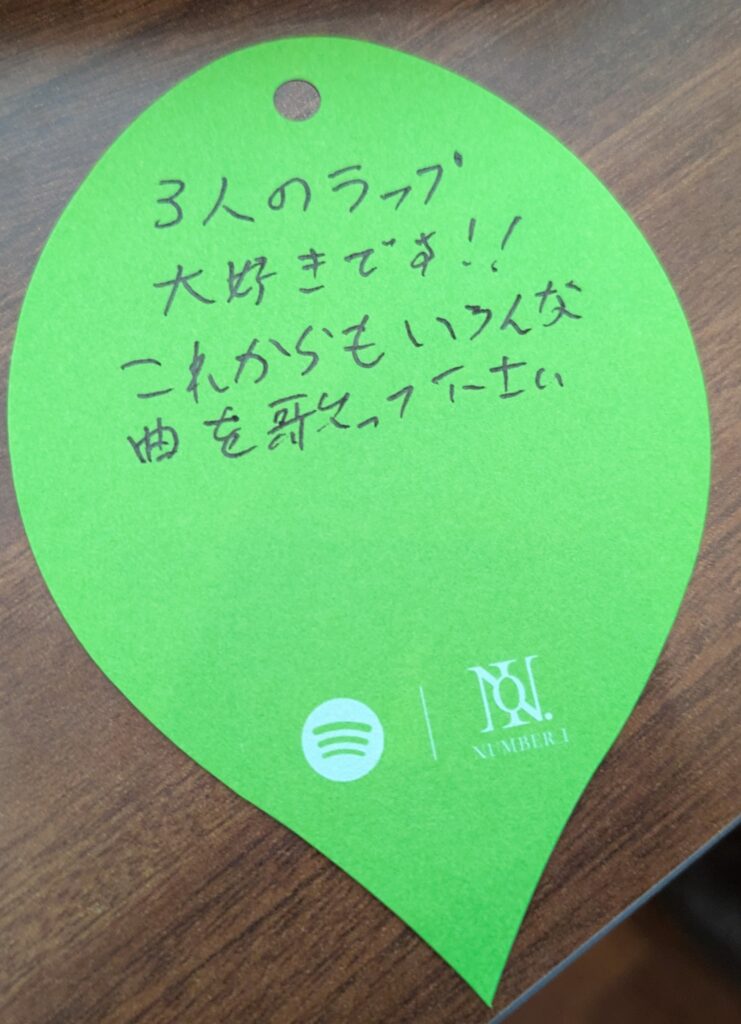 3人のラップ
大好きです!!
これからもいろんな
曲を歌って下さい
NUMBER_I